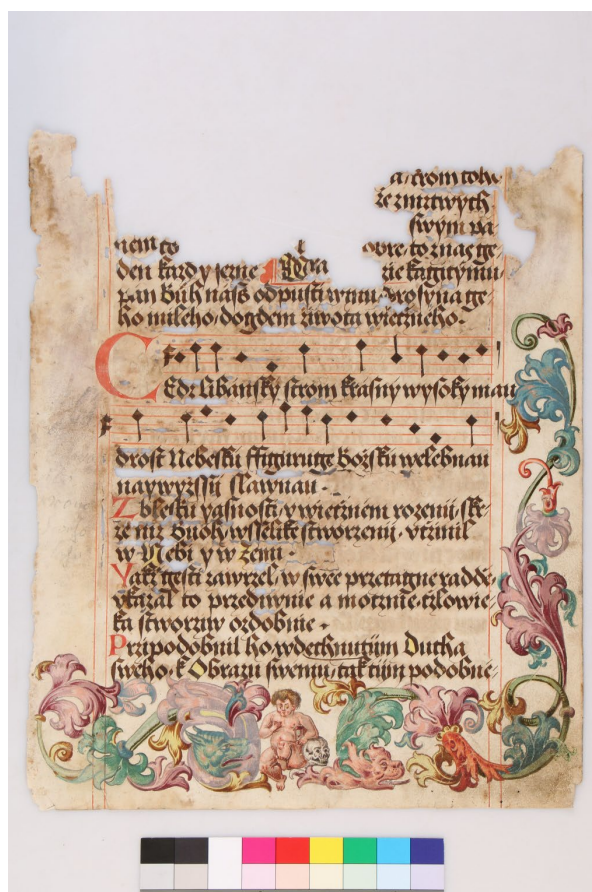 a, crom tohv
že zmrtwych
swym pa
nem to
obre to znage
den každy jerne
rie kagicymu
pan Buh nass odpusti winu. Prosyna ge
ho mileho, dogdem žiwota wiečneho.
CEdr Libansky strom krasny wysoky mau
drost Nebeskú ffiguruge Božsku welebnau
naywyžssii slawnau.
Zbleskú yasnosti, y wietrnem rozenii, skr-
že niž Buoh, wsselike stworzenii, vtžinil
w Nebi y w Zemi.
Yakž gesti zawrzel, w swee przetagne raddě,
vkazal to przediwnie a motznie, tzlowie-
ka stworziw ozdobnie.
Przipodobnil ho, wdechnutijm Ducha
sweho, k Obrazu swemu, tak tijm podobne-